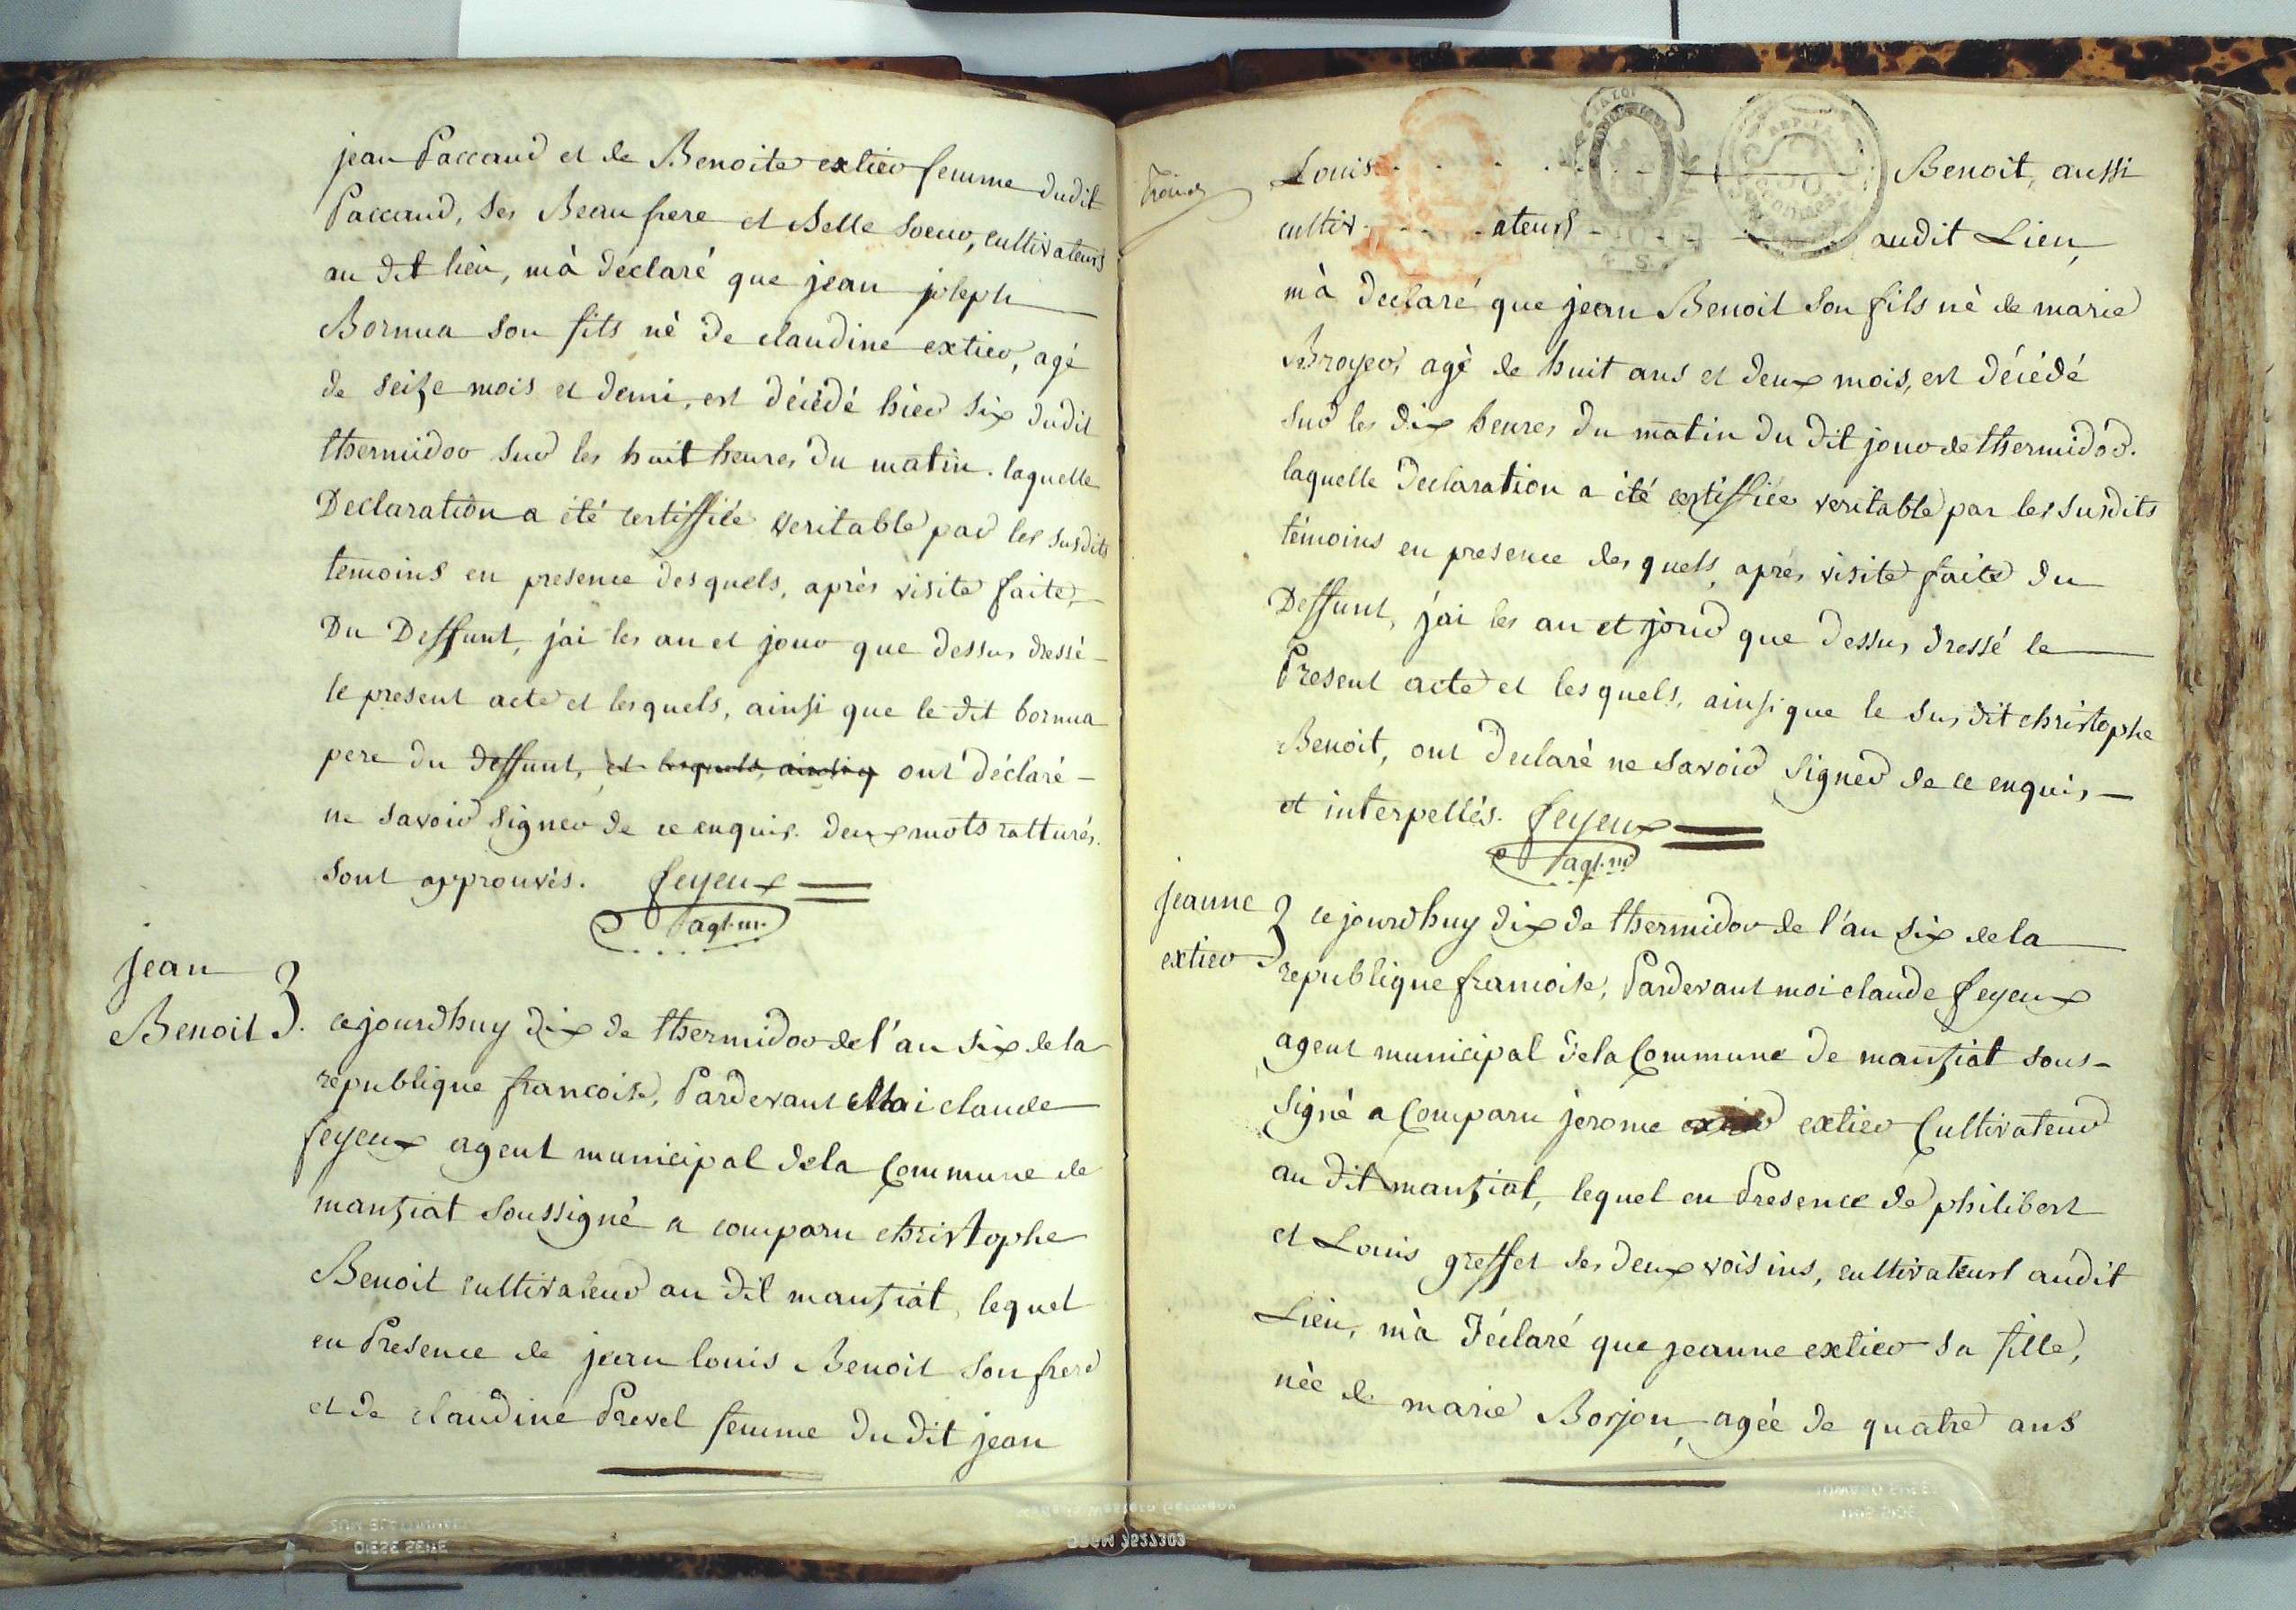 jean Paccaud et de Benoite extier femme dudit
Paccaud, ses Beau frere et Belle soeur, cultivateurs
au dit lieu, m'à déclaré que jean joseph
Bornua son fils né de claudine extier, agé
de seize mois et demi, est décédé hier six dudit
thermidor sur les huit heures du matin. laquelle
Declaration a été certiffiée veritable par les susdits
temoins en presence desquels, après visite faite,
Du Deffunt, j'ai les an et jour que dessus dressé
le present acte et lesquels, ainsi que le dit bornua
pere du deffunt, et lesquels, ainsi q ont déclaré
ne savoir signer de ce enquis. deux motsratturés.
sont approuvés. feyeux
agt. m.
jean
Benoit
cejourdhuy dix de thermidor de l'an six de la
republique francoise, Pardevant Moi claude
feyeux agent municipal dela Commune de
manziat soussigné a comparu christophe
Benoit cultivateur au dit manziat, lequel
en Presence de jean louis Benoit son frere
et de claudine Prevel femme du dit jean
Louis Benoit, aussi
cultivateurs audit Lieu,
m'à declaré que jean Benoit son fils né de marie
Broyer, agé de huit ans et deux mois, est décédé
sur les dix heures du matin du dit jour de thermidor.
laquelle Declaration a été certiffiée veritable par les susdits
témoins en presence des quels, après visite faite du
Deffunt, j'ai les an et jour que dessus dressé le
Present acte et les quels, ainsi que le sus dit christophe
Benoit, ont declaré ne savoir signer de ce enquis
et interpellés. feyeux
agt. m
jeanne
extier
cejourdhuy dix de thermidor de l'an six de la
republique francoise, Pardevant moi claude feyeux
agent municipal dela Commune de manziat sous-
signé a Comparu jerome extier extier Cultivateur
au dit manziat, lequel en Presence de philibert
et Louis greffet ses deux voisins, cultivateurs audit
Lieu, m'à déclaré que jeanne extier sa fille,
née de marie Borjon, agée de quatre ans